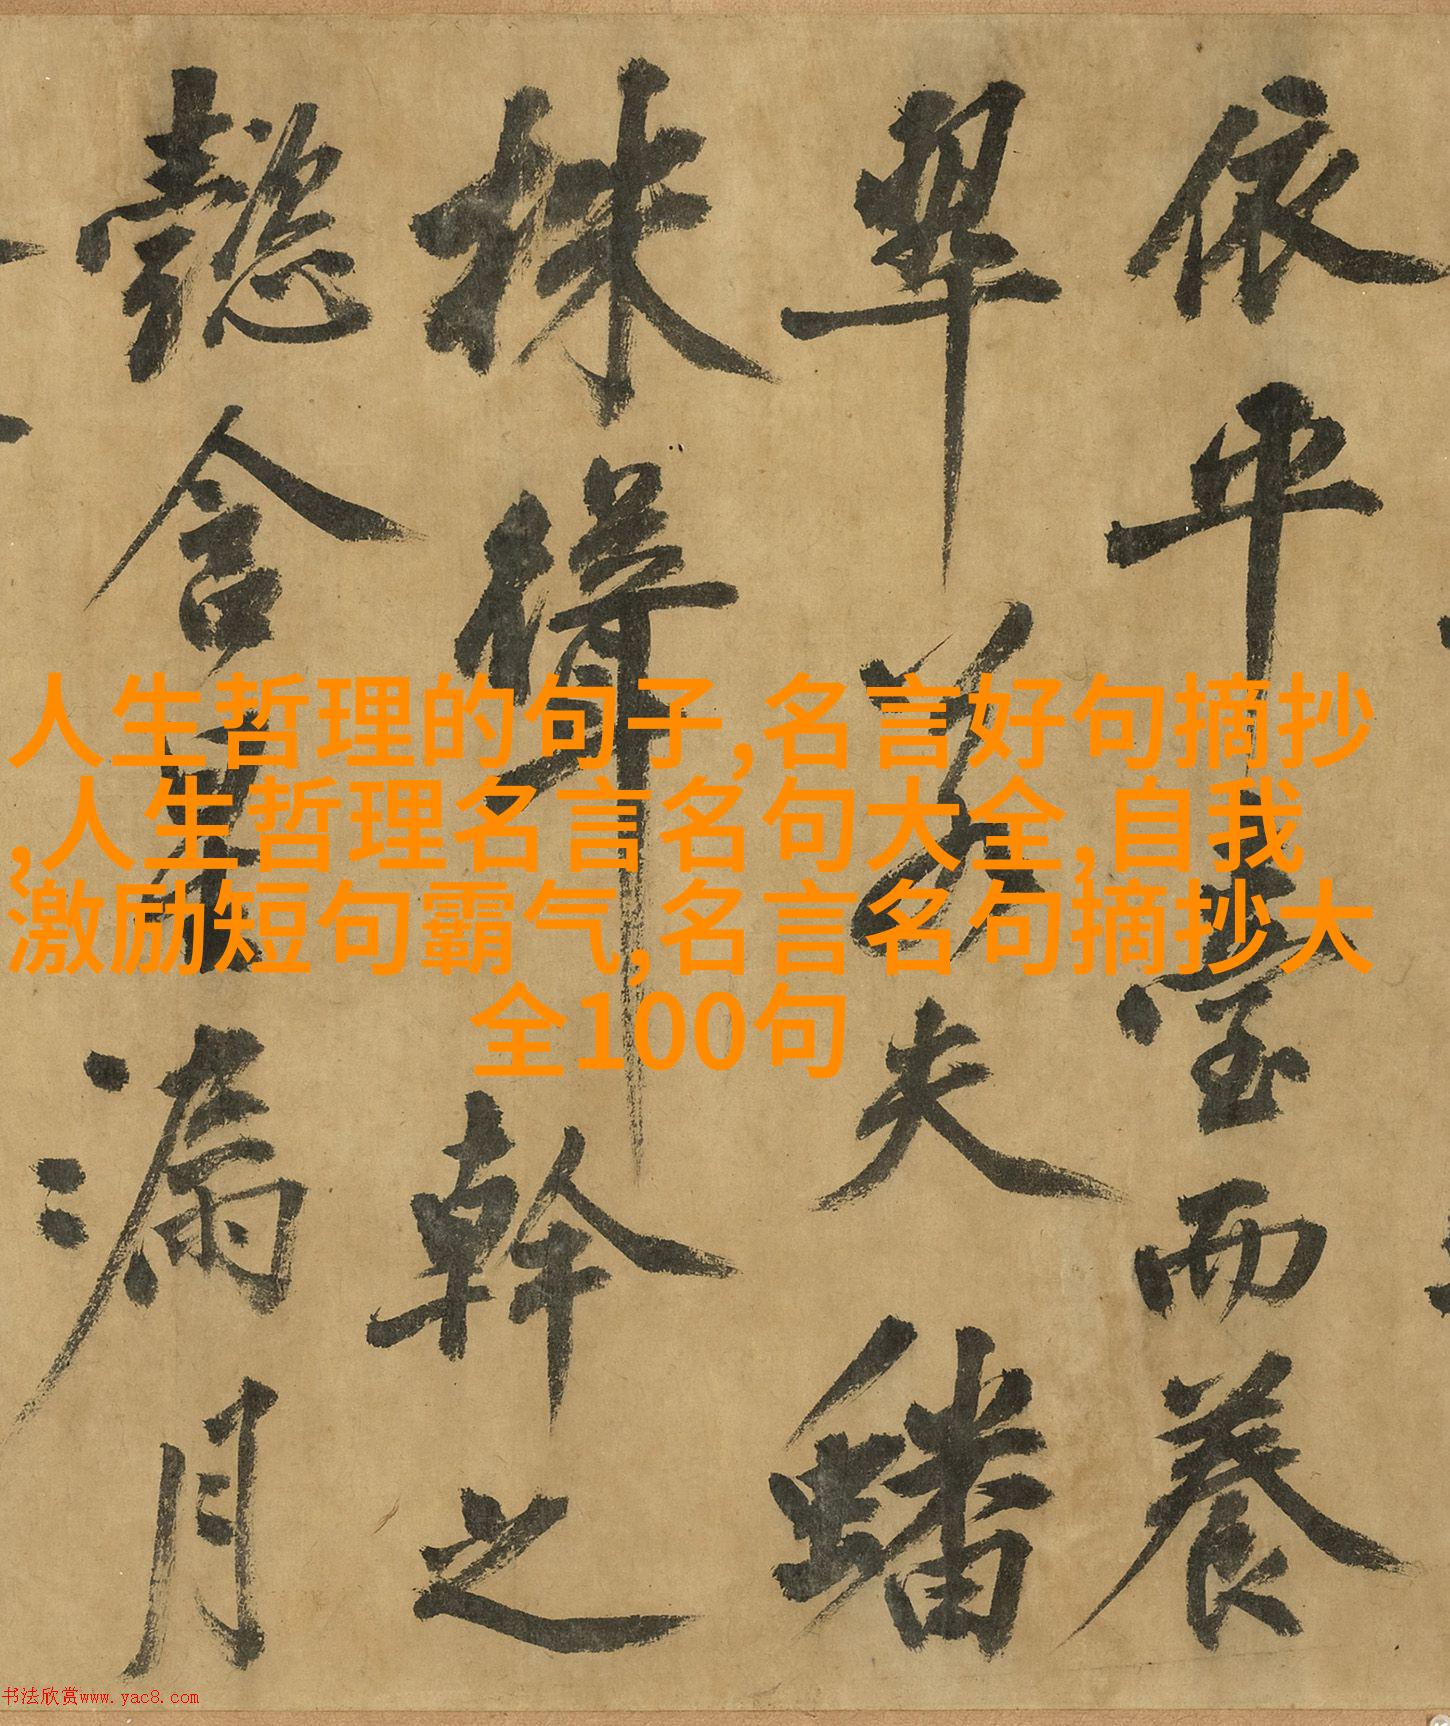 依平臺而養
翠若夫蟠
株幹之
懿含漏月
人生哲理的句子,名言好句摘抄
,人生哲理名言名句大全,自我
激励短句霸气,名言名句摘抄大
全100句
书法欣赏www.yac8.com